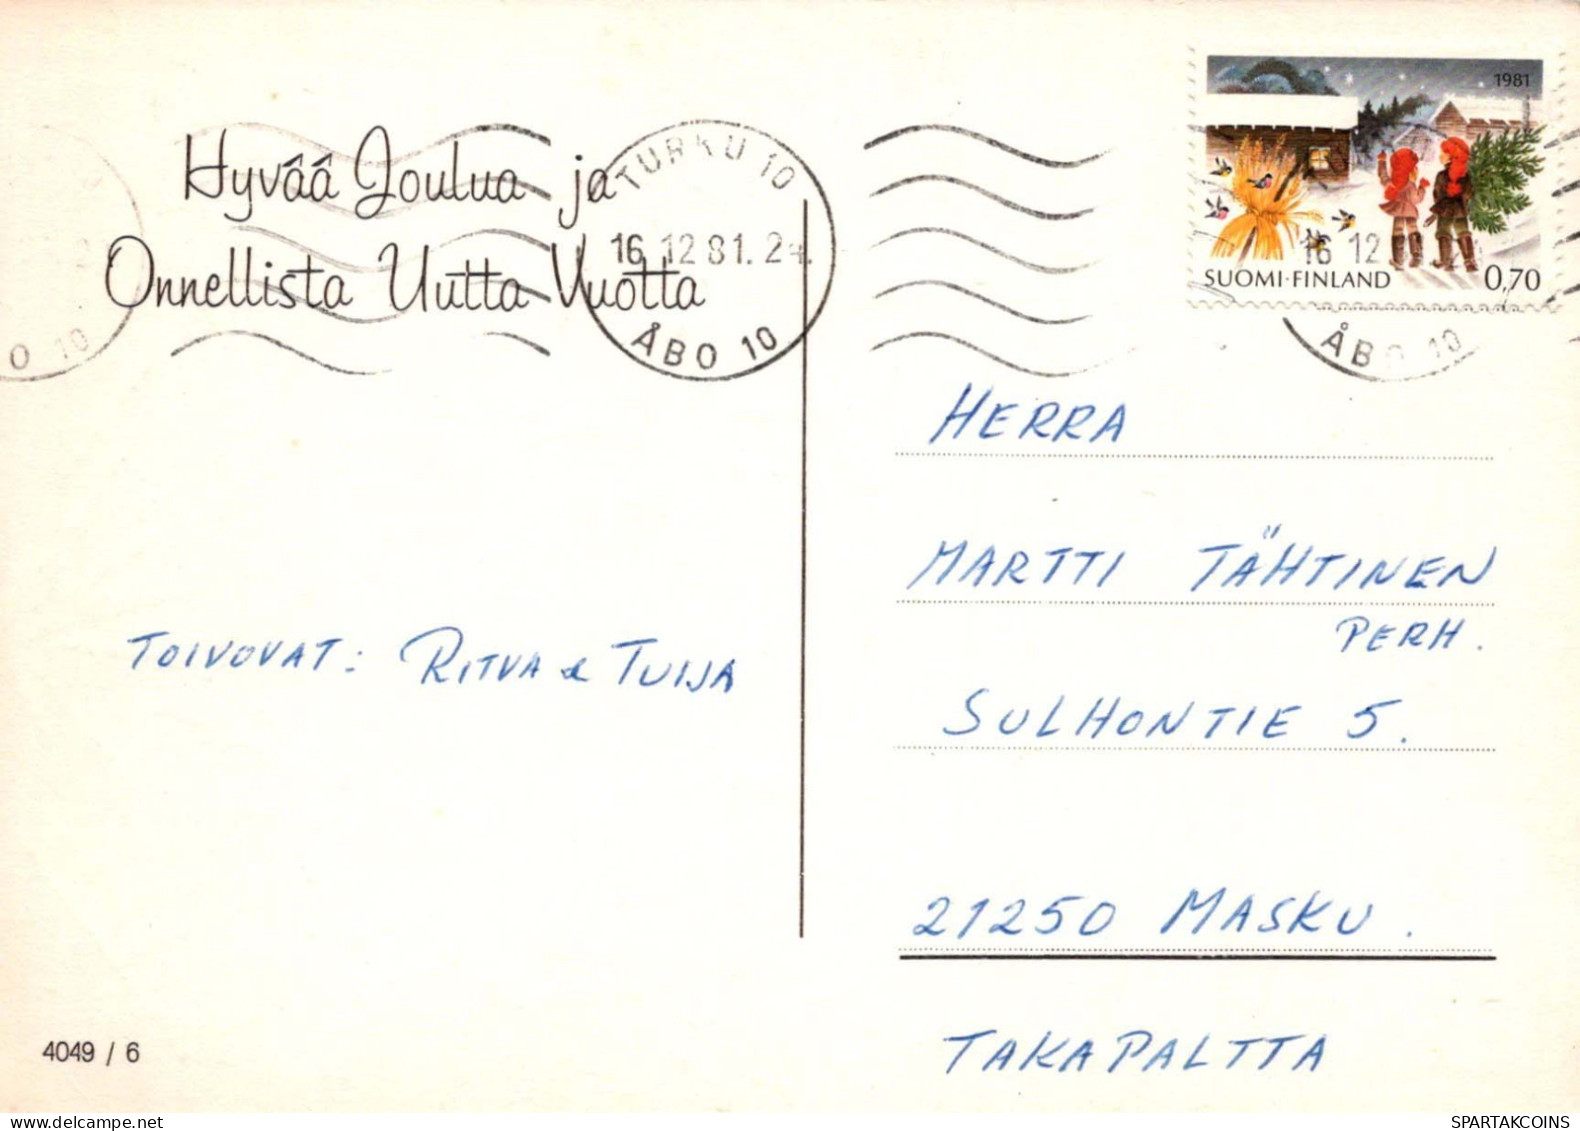 Hyvää Joulua ja
Onnellista Uutta Vuotta
TURKU 10
16.12 81. 24.
ÅBO 10
O 10
1981
SUOMI·FINLAND 0,70
16 12
ÅBO 10
HERRA
MARTTI TÄHTINEN
PERH.
SULHONTIE 5.
21250 MASKU.
TAKAPALTTA
TOIVOVAT: RITVA & TUIJA
4049 / 6
SPARTAKCOINS